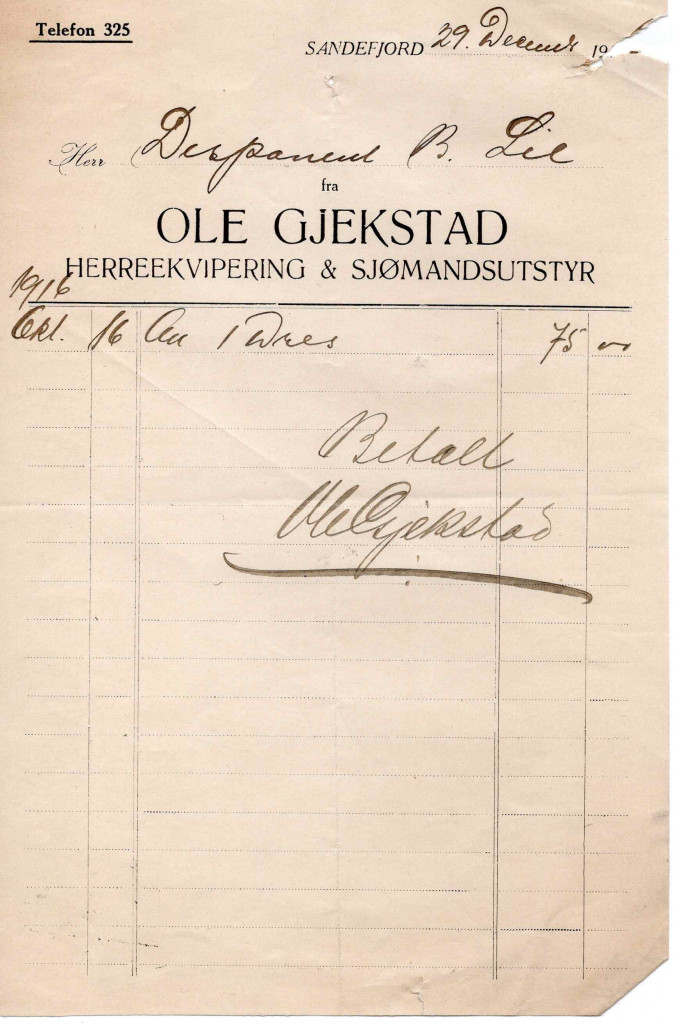 Telefon 325
SANDEFJORD 29. Decembr 19
Herr Disponent B. Lie
fra
OLE GJEKSTAD
HERREEKVIPERING & SJØMANDSUTSTYR
1916
Okt. 16 An 1 Dres 75 00
Betalt
Ole Gjekstad